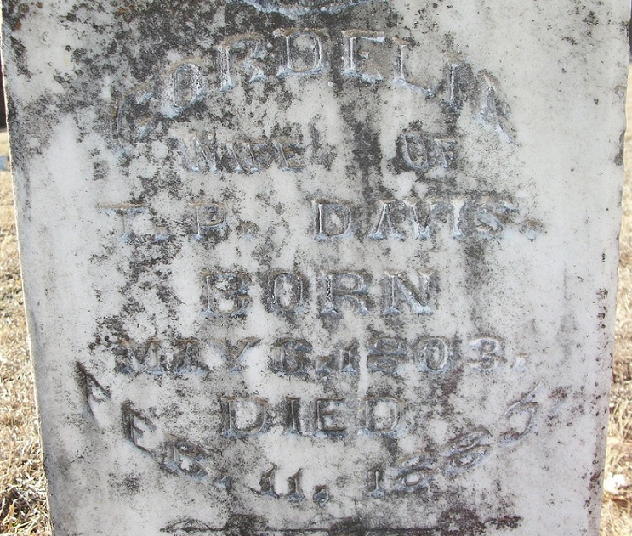 CORDELIA
WIFE OF
T. P. DAVIS.
BORN
MAY 6, 1803.
DIED
FEB. 11,